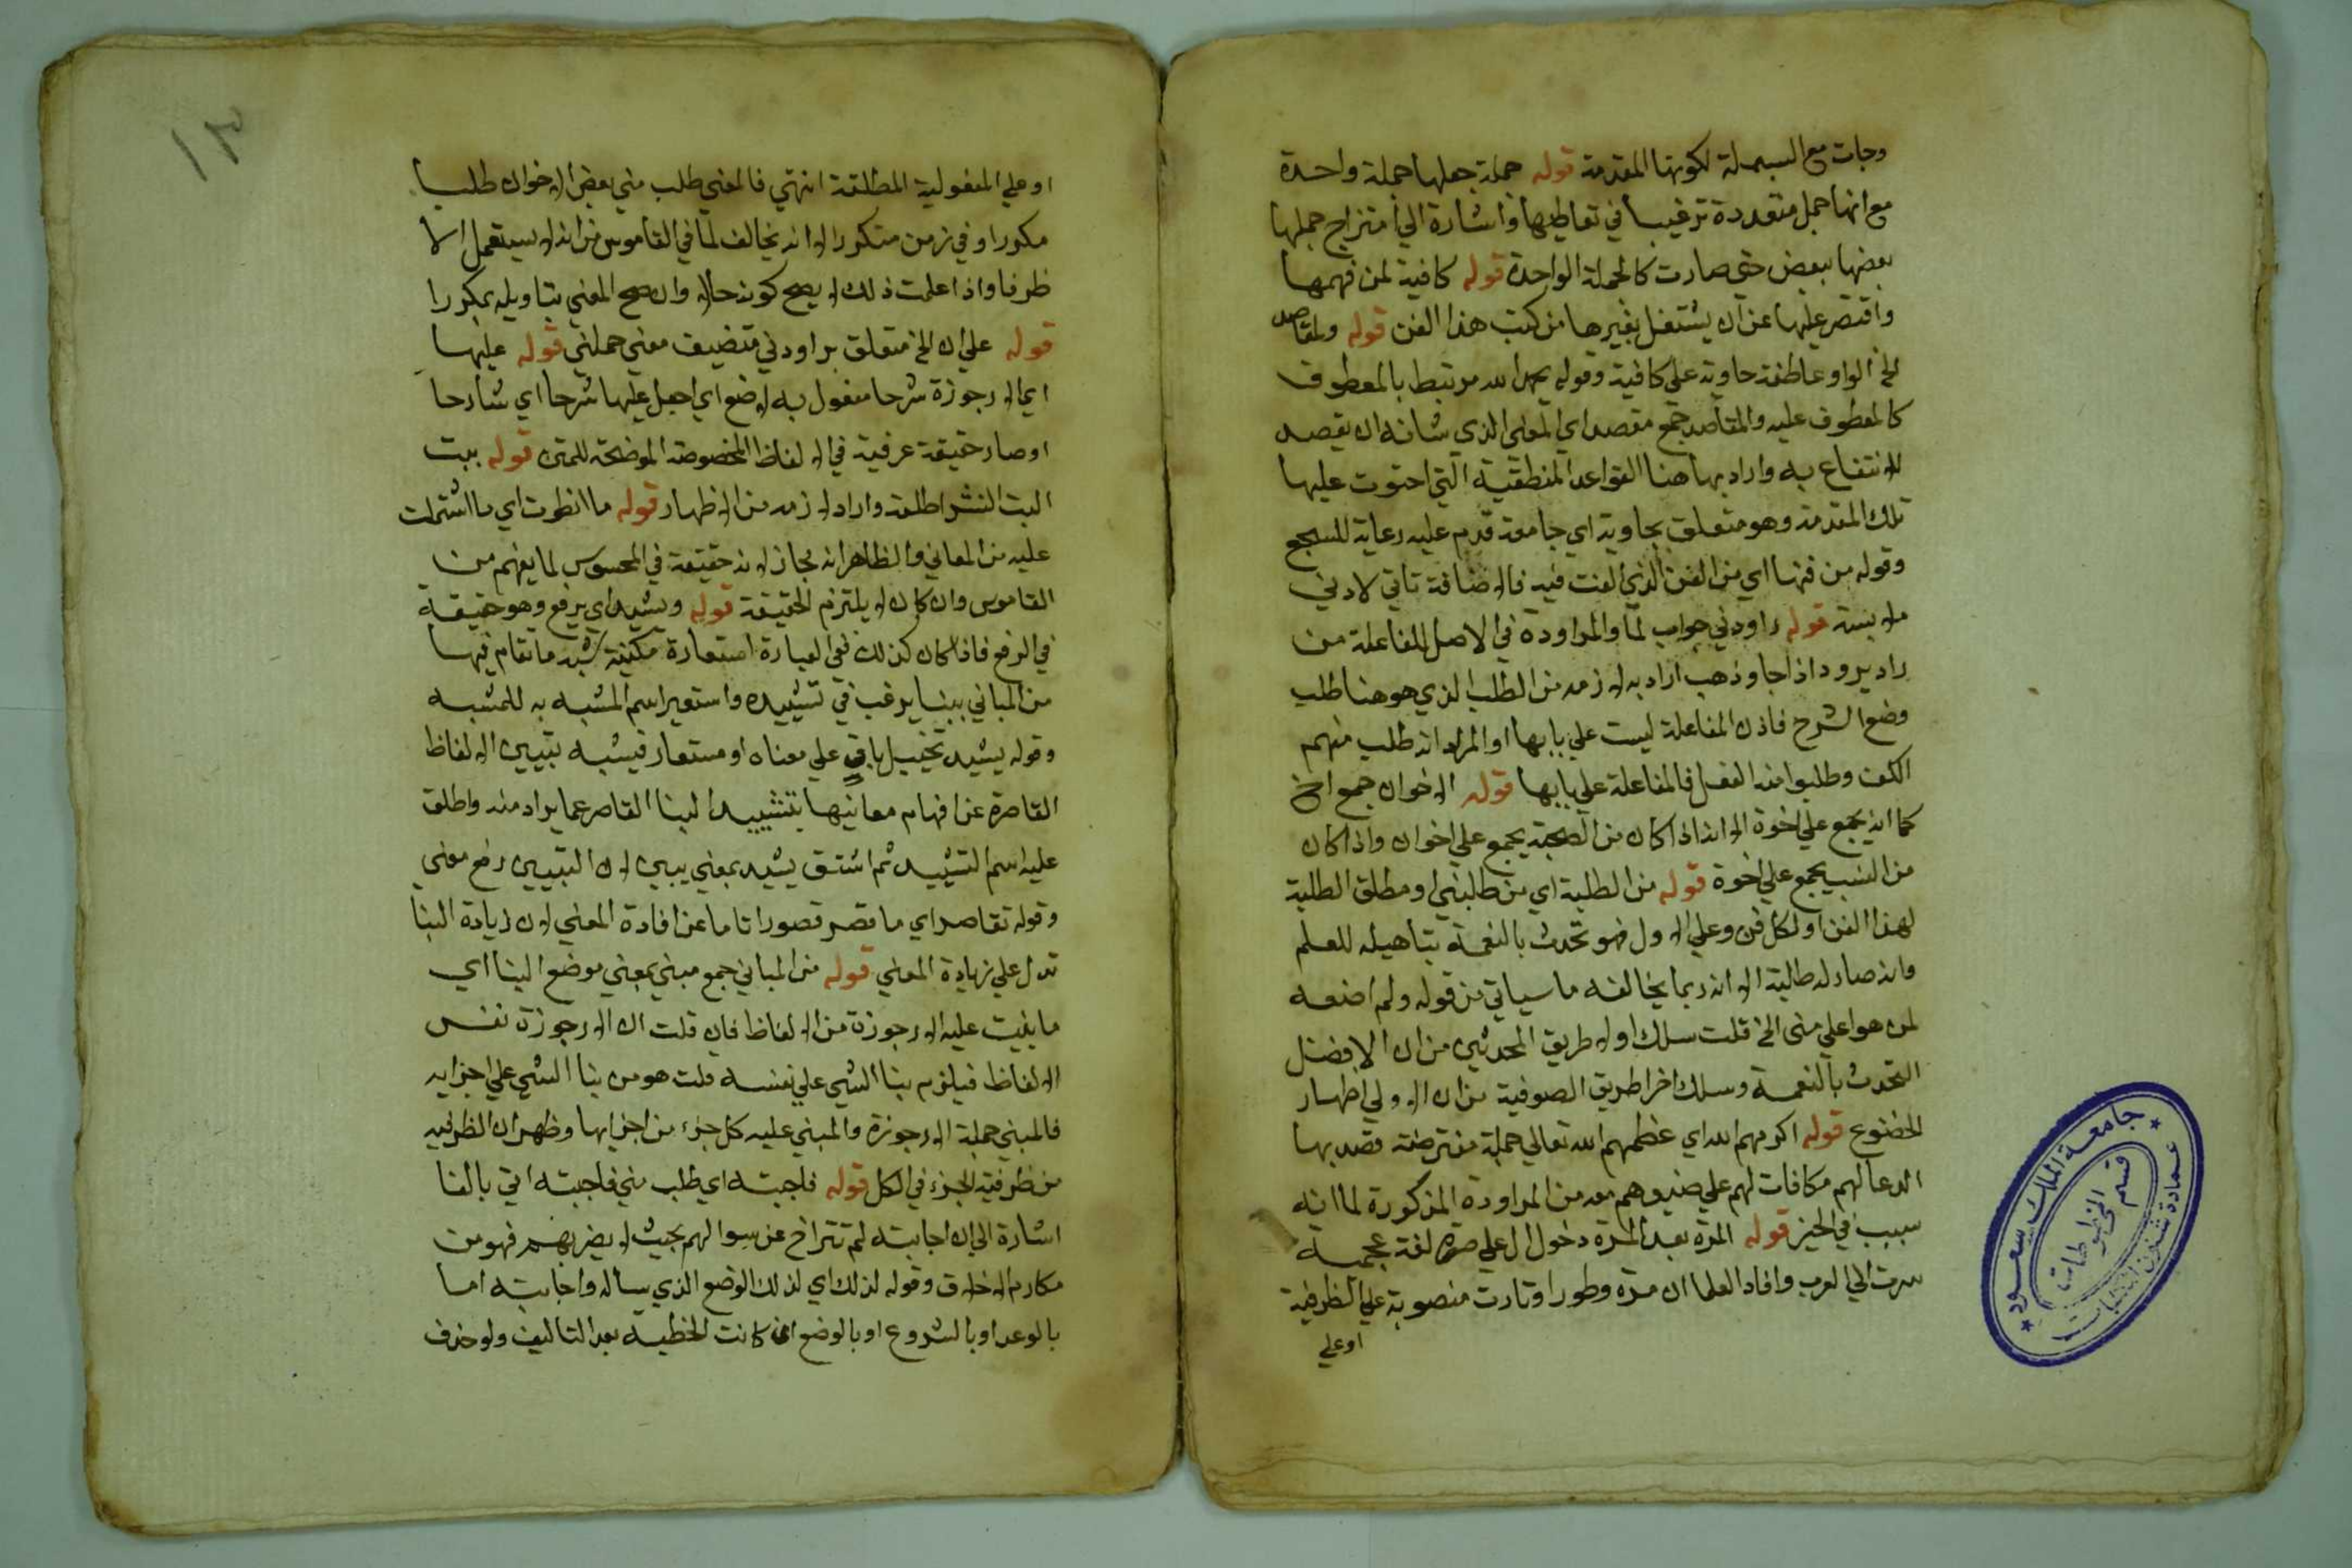 وجات مع البسملة لكونها المقدمة قوله جملة جعلها جملة واحدة
مع انها جمل متعددة ترغيبا في تعاطيها واشارة الي امتزاج جملها
بعضها ببعض حتي صارت كالجملة الواحدة قوله كافية لمن فهمها
واقتصر عليها عن ان يشتغل بغيرها من كتب هذا الفن قوله وبمقاصد
الخ الواو عاطفة حاوية علي كافية وقوله بحمد الله مرتبط بالمعطوف
كالمعطوف عليه والمقاصد جمع مقصد اي المعني الذي شانه ان يقصد
للانتفاع به واراد بها هنا القواعد المنطقية التي احتوت عليها
تلك المقدمة وهو متعلق بحاوية اي جامعة قدم عليه رعاية للسجع
وقوله من فنها اي من الفن الذي الفت فيه فالاضافة تاتي لادني
ملابسة قوله راودني جواب لما والمراودة في الاصل المفاعلة من
راد يرود اذا جا وذهب اراد به لازمه من الطلب الذي هو هنا طلب
وضع الشرح فاذن المفاعلة ليست علي بابها او المراد انه طلب منهم
الكف وطلبوا منه الفعل فالمفاعلة علي بابها قوله الاخوان جمع اخ
كما انه يجمع علي اخوة الا انه اذا كان من الصحبة يجمع علي اخوان واذا كان
من النسب يجمع علي اخوة قوله من الطلبة اي من طالبني او مطلق الطلبة
لهذا الفن او لكل فن وعلي الاول فهو تحدث بالنعمة بتاهيله للعلم
وانه صار له طالبة الا انه ربما يخالفه ما سياتي من قوله ولم اضعه
لمن هو اعلي مني الخ قلت سلك اولا طريق المحدثين من ان الافضل
التحدث بالنعمة وسلك اخرا طريق الصوفية من ان الاولي اظهار
الخضوع قوله اكرمهم الله اي عظمهم الله تعالي جملة معترضة قصد بها
الدعا لهم مكافات لهم علي صنيعهم معه من المراودة المذكورة لما انه
سبب في الخير قوله المرة بعد المرة دخول ال علي مرة لغة عجمية
سرت الي العرب وافاد العلما ان مرة وطورا وتارت منصوبة علي الظرفية
او علي
او علي المفعولية المطلقة انتهي فالمعني طلب مني بعض الاخوان طلبا
مكورا او في زمن متكورا الا انه يخالف لما في القاموس من انه لا يستعمل الا
ظرفا واذا علمت ذلك لا يصح كونه حالا وان صح المعني بتاويله بمكورا
قوله علي ان الخ متعلق براودني متضيف معني حملني قوله عليها
اي الارجوزة شرحا مفعول به لاضع اي اجعل عليها شرحا اي شارحا
او صار حقيقة عرفية في الالفاظ المخصوصة الموضحة للمتن قوله يبت
البت النشر اطلقه واراد لازمه من الاظهار قوله ما انطوت اي ما اشتملت
عليه من المعاني والظاهر انه مجاز لانه حقيقة في المحسوس لما يفهم من
القاموس وان كان لا يلتزم الحقيقة قوله ويشيد اي يرفع وهو حقيقة
في الرفع فاذا كان كذلك ففي العبارة استعارة مكنية شبه ما تقام فيها
من المباني ببنا يرغب في تشييده واستعير اسم المشبه به للمشبه
وقوله يشيد تخييل باقي علي معناه او مستعار فيشبه بتبيين الالفاظ
القاصرة عن افهام معانيها بتشييد البنا القاصر عما يراد منه واطلق
عليه اسم التشييد ثم اشتق يشيد بمعني يبين لان التبيين رفع معني
وقوله تقاصر اي ما قصر قصورا تاما عن افادة المعني لان زيادة البنا
تدل علي زيادة المعني قوله من المباني جمع مبني بمعني موضع البنا اي
ما بنيت عليه الارجوزة من الالفاظ فان قلت ان الارجوزة نفس
الالفاظ فيلزم بنا الشي علي نفسه قلت هو من بنا الشي علي اجزايه
فالمبني جملة الارجوزة والمبني عليه كل جزء من اجزايها وظهر ان الظرفيه
من ظرفية الجزء في الكل قوله فاجبته اي طلب مني فاجبته اتي بالفا
اشارة الي ان اجابته لم تتراخ عن سوالهم بحيث لا يضر بهم فهو من
مكارم الاخلاق وقوله لذلك اي لذلك الوضع الذي ساله واجابته اما
بالوعد او بالشروع او بالوضع ان كانت الخطبة بعد التاليف ولو حذف
١٣
جامعة الملك سعود
قسم المخطوطات
عمادة شئون المكتبات